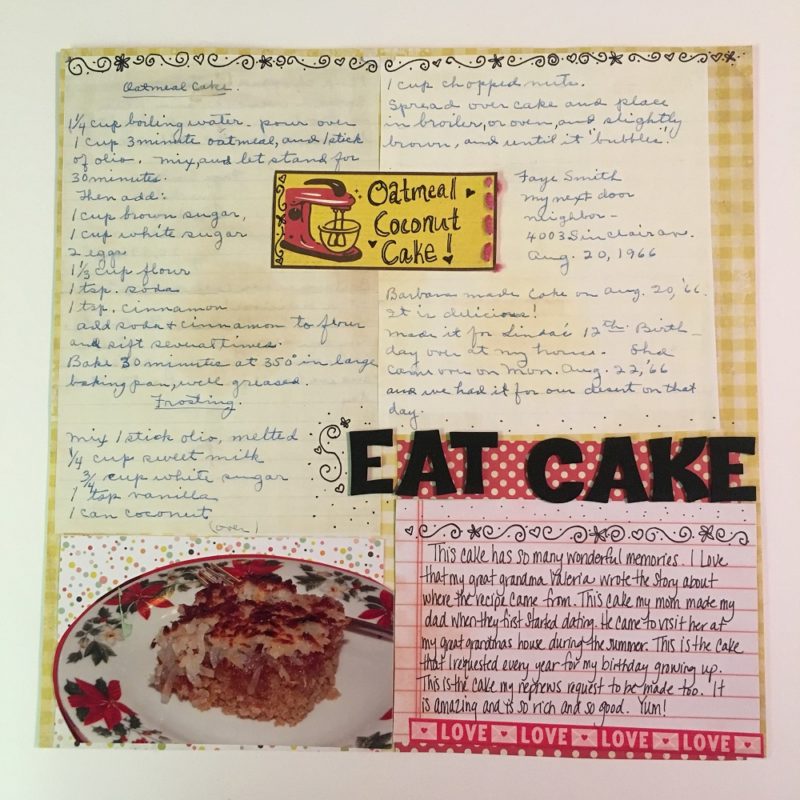 Oatmeal Cake.
1 1/4 cup boiling water - pour over
1 cup 3 minute oatmeal, and 1 stick
of olio. mix, and let stand for
30 minutes.
Then add:
1 cup brown sugar,
1 cup white sugar
2 eggs
1 1/3 cup flour
1 tsp. soda
1 tsp. cinnamon
add soda & cinnamon to flour
and sift several times.
Bake 30 minutes at 350° in large
baking pan, well greased.
Frosting.
mix 1 stick olio, melted
1/4 cup sweet milk
3/4 cup white sugar
1 tsp vanilla
1 can coconut
(over)
1 cup chopped nuts.
Spread over cake and place
in broiler, or oven, and slightly
brown, and until it "bubbles".
Oatmeal
Coconut
Cake!
Faye Smith
my next door
neighbor -
4003 Sinclair av.
Aug. 20, 1966
Barbara made cake on Aug. 20, '66.
It is delicious!
made it for Linda's 12th Birth-
day over at my house. She
came over on Mon. Aug. 22, '66
and we had it for our desert on that
day.
EAT CAKE
This cake has so many wonderful memories. I Love
that my great grandma Valeria wrote the story about
where the recipe came from. This cake my mom made my
dad when they first started dating. He came to visit her at
my great grandmas house during the summer. This is the cake
that I requested every year for my birthday growing up.
This is the cake my nephews request to be made too. It
is amazing and is so rich and so good. Yum!
LOVE LOVE LOVE LOVE